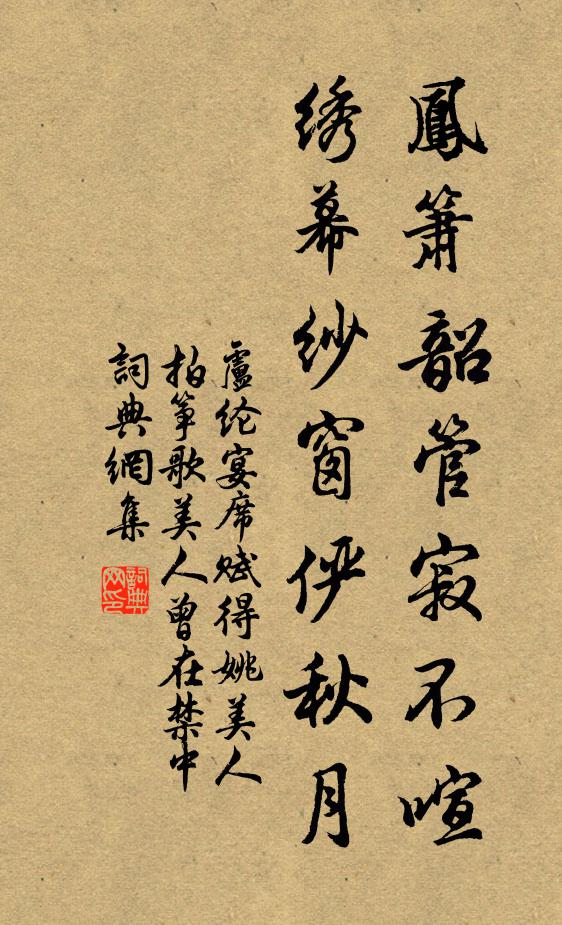 鳳簫韶管寂不喧
绣幕纱窗俨秋月
盧纶宴席赋得姚美人
拍筝歌美人曾在禁中
詞典網集
詞典网印